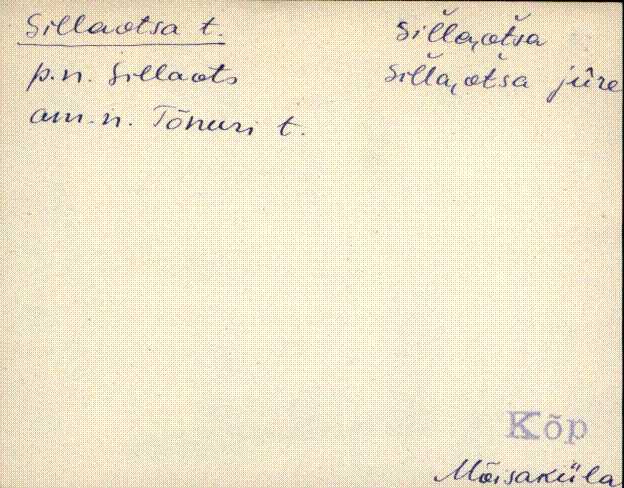 Sillaotsa t.
p.n. Sillaots
am.n. Tõnuri t.
šil̆la,ot̆sa
šil̆la,ot̆sa jûre
Kõp
Mõisaküla